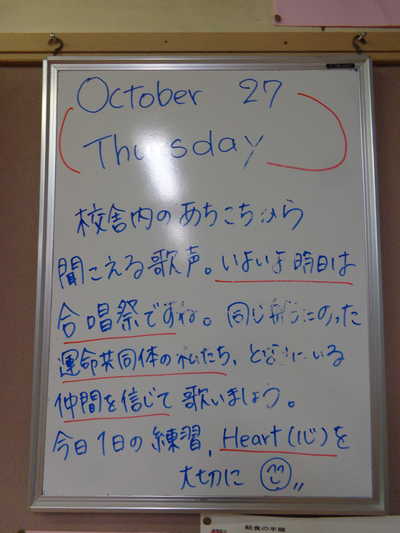 October 27
Thursday
校舎内のあちこちから
聞こえる歌声。いよいよ明日は
合唱祭ですね。同じ船にのった
運命共同体の私たち、となりにいる
仲間を信じて歌いましょう。
今日1日の練習、Heart(心)を
大切に